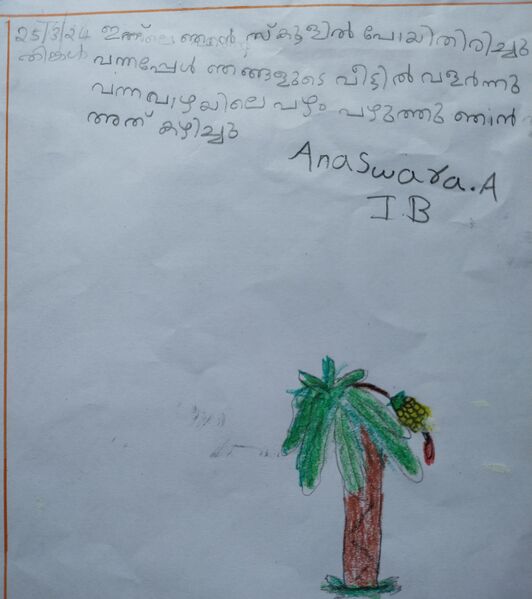 25/3/24 ഇന്നലെ ഞാൻ സ്കൂളിൽ പോയി തിരിച്ചു
തിങ്കൾ വന്നപ്പേൾ ഞങ്ങളുടെ വീട്ടിൽ വളർന്നു
വന്ന വാഴയിലെ പഴം പഴുത്തു ഞാൻ
അത് കഴിച്ചു
Anaswara.A
I.B